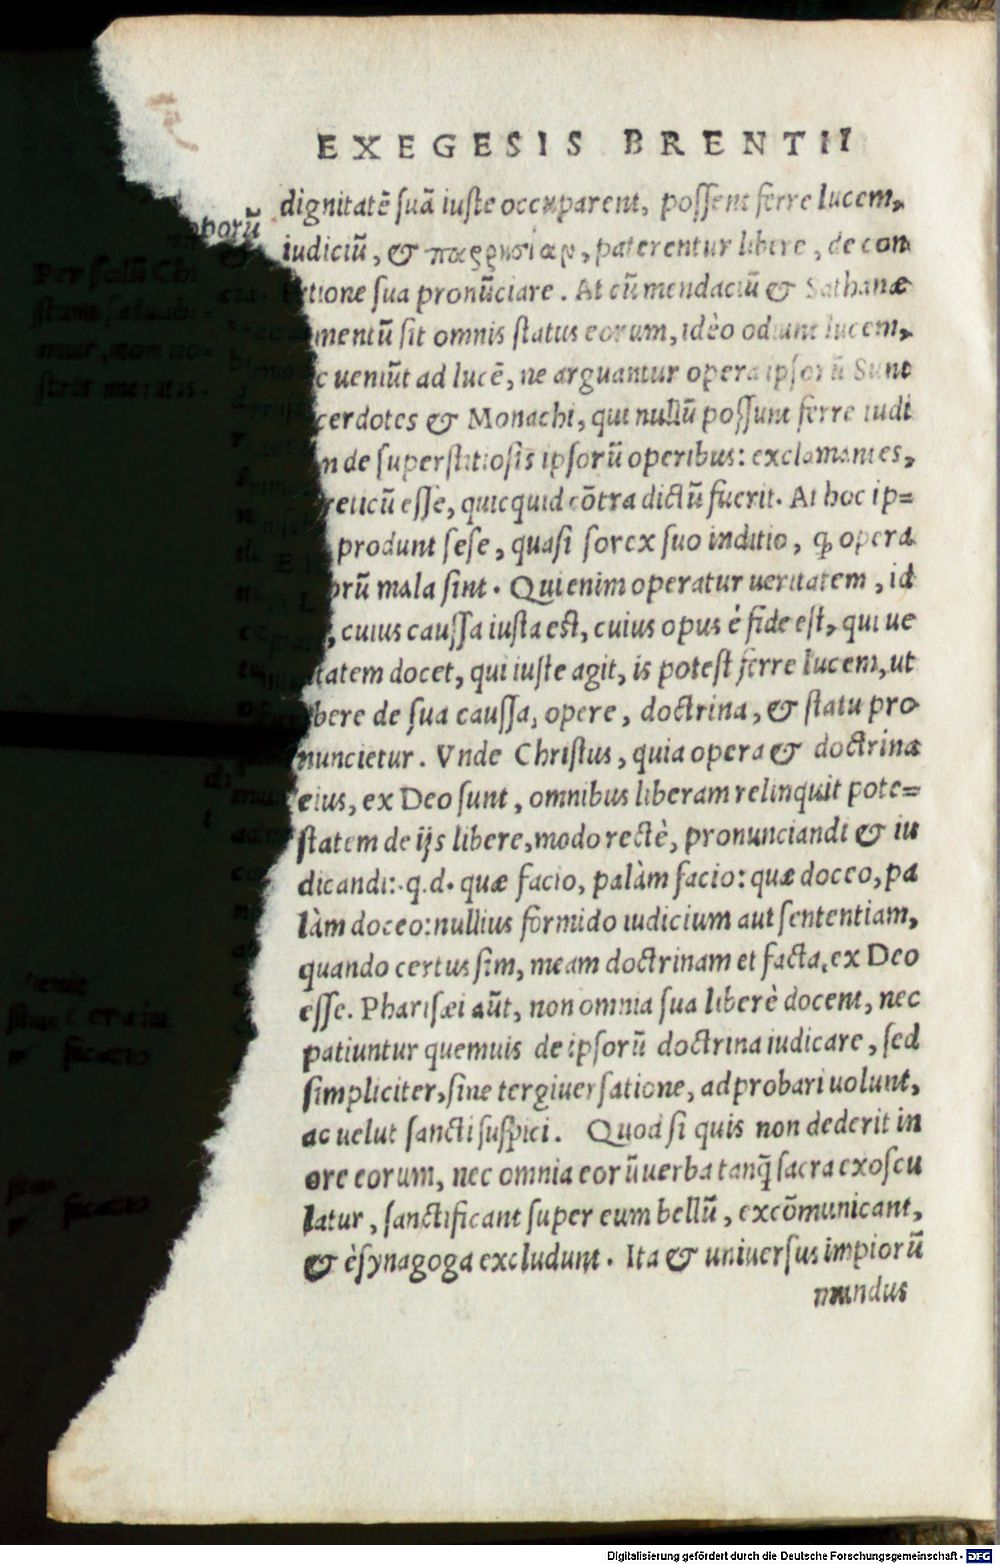 EXEGESIS BRENTII
dignitatē ſuā iuſte occuparent, poſſent ferre lucem,
iudiciū, & παρρησίαν, paterentur libere, de con
tione ſua pronūciare. At cū mendaciū & Sathanæ
mentū ſit omnis ſtatus eorum, idèo odiunt lucem,
c ueniūt ad lucē, ne arguantur opera ipſorū Sunt
cerdotes & Monachi, qui nullū poſſunt ferre iudi
n de ſuperſtitioſis ipſorū operibus: exclamantes,
reticū eſſe, quicquid cōtra dictū fuerit. At hoc ip=
produnt ſeſe, quaſi ſorex ſuo inditio, ꝙ opera
orū mala ſint. Qui enim operatur ueritatem, id
, cuius cauſſa iuſta eſt, cuius opus è fide eſt, qui ue
tatem docet, qui iuſte agit, is poteſt ferre lucem, ut
bere de ſua cauſſa, opere, doctrina, & ſtatu pro
nuncietur. Vnde Chriſtus, quia opera & doctrina
eius, ex Deo ſunt, omnibus liberam relinquit pote=
ſtatem de ijs libere, modo rectè, pronunciandi & iu
dicandi: .q.d. quæ facio, palàm facio: quæ doceo, pa
làm doceo: nullius formido iudicium aut ſententiam,
quando certus ſim, meam doctrinam et facta, ex Deo
eſſe. Phariſæi aūt, non omnia ſua liberè docent, nec
patiuntur quemuis de ipſorū doctrina iudicare, ſed
ſimpliciter, ſine tergiuerſatione, adprobari uolunt,
ac uelut ſancti ſuſpici. Quod ſi quis non dederit in
ore eorum, nec omnia eorū uerba tanq̃ ſacra exoſcu
latur, ſanctificant ſuper eum bellū, excōmunicant,
& è ſynagoga excludunt. Ita & uniuerſus impiorū
mundus
Digitalisierung gefördert durch die Deutsche Forschungsgemeinschaft - DFG